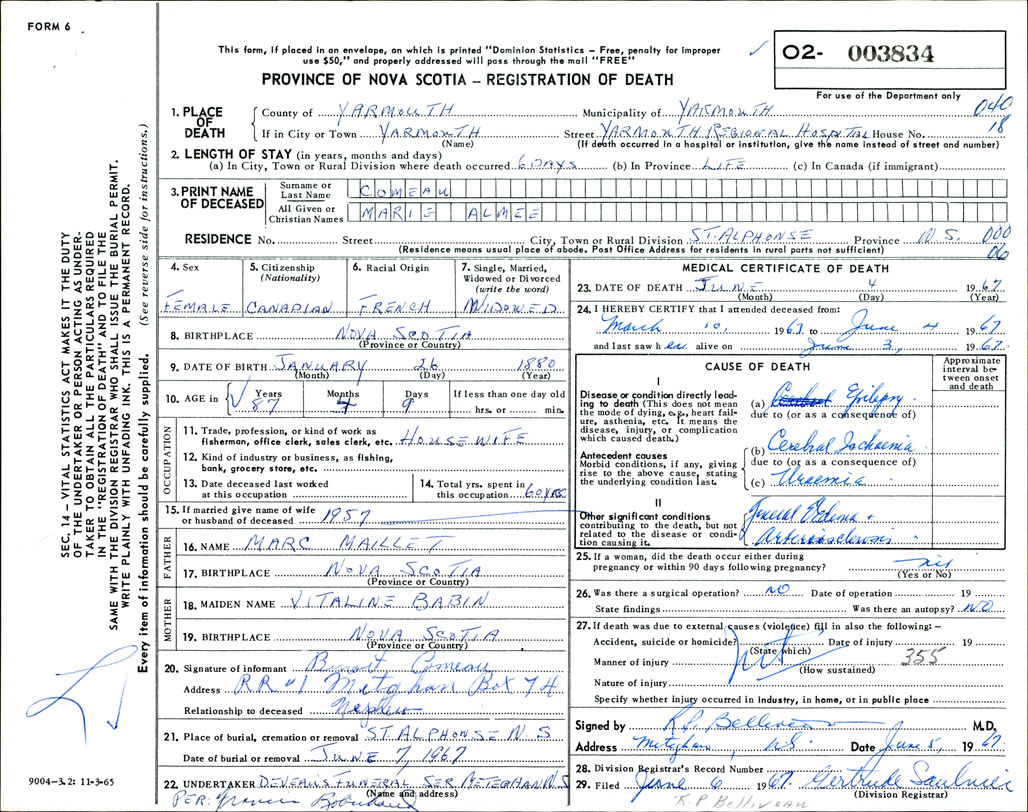 FORM 6
This form, if placed in an envelope, on which is printed "Dominion Statistics – Free, penalty for improper
use $50," and properly addressed will pass through the mail "FREE"
PROVINCE OF NOVA SCOTIA – REGISTRATION OF DEATH
O2- 003834
For use of the Department only
SEC. 14 – VITAL STATISTICS ACT MAKES IT THE DUTY
OF THE UNDERTAKER OR PERSON ACTING AS UNDER-
TAKER TO OBTAIN ALL THE PARTICULARS REQUIRED
IN THE "REGISTRATION OF DEATH" AND TO FILE THE
SAME WITH THE DIVISION REGISTRAR WHO SHALL ISSUE THE BURIAL PERMIT.
WRITE PLAINLY WITH UNFADING INK. THIS IS A PERMANENT RECORD.
Every item of information should be carefully supplied. (See reverse side for instructions.)
1. PLACE OF DEATH
County of YARMOUTH Municipality of YARMOUTH 040
If in City or Town YARMOUTH Street YARMOUTH REGIONAL HOSPITAL House No. 18
(Name) (If death occurred in a hospital or institution, give the name instead of street and number)
2. LENGTH OF STAY (in years, months and days)
(a) In City, Town or Rural Division where death occurred 6 DAYS (b) In Province LIFE (c) In Canada (if immigrant)
3. PRINT NAME OF DECEASED
Surname or Last Name COMEAU
All Given or Christian Names MARIE ALMEE
RESIDENCE No. Street City, Town or Rural Division ST. ALPHONSE Province N.S. 000
(Residence means usual place of abode. Post Office Address for residents in rural parts not sufficient) 06
4. Sex
FEMALE
5. Citizenship (Nationality)
CANADIAN
6. Racial Origin
FRENCH
7. Single, Married, Widowed or Divorced (write the word)
WIDOWED
8. BIRTHPLACE NOVA SCOTIA
(Province or Country)
9. DATE OF BIRTH JANUARY 26 1880
(Month) (Day) (Year)
10. AGE in Years 87 Months 4 Days 9
If less than one day old
hrs. or min.
OCCUPATION
11. Trade, profession, or kind of work as
fisherman, office clerk, sales clerk, etc. HOUSEWIFE
12. Kind of industry or business, as fishing,
bank, grocery store, etc.
13. Date deceased last worked
at this occupation
14. Total yrs. spent in
this occupation 60 YRS
15. If married give name of wife
or husband of deceased 1957
FATHER
16. NAME MARC MAILLET
17. BIRTHPLACE NOVA SCOTIA
(Province or Country)
MOTHER
18. MAIDEN NAME VITALINE BABIN
19. BIRTHPLACE NOVA SCOTIA
(Province or Country)
20. Signature of informant Benoit Comeau
Address RR #1 Meteghan Box 74
Relationship to deceased Nephew
21. Place of burial, cremation or removal ST. ALPHONSE N S
Date of burial or removal JUNE 7, 1967
22. UNDERTAKER DEVEAU'S FUNERAL SER. METEGHAN N.S
(Name and address)
PER: Francis
9004-3.2: 11-3-65
MEDICAL CERTIFICATE OF DEATH
23. DATE OF DEATH JUNE 4 1967
(Month) (Day) (Year)
24. I HEREBY CERTIFY that I attended deceased from:
March 10, 1967 to June 4 1967
and last saw her alive on June 3, 1967
CAUSE OF DEATH
Approximate interval between onset and death
I
Disease or condition directly lead-
ing to death (This does not mean
the mode of dying, e.g., heart fail-
ure, asthenia, etc. It means the
disease, injury, or complication
which caused death.)
(a) Cerebral Epilepsy
due to (or as a consequence of)
Antecedent causes
Morbid conditions, if any, giving
rise to the above cause, stating
the underlying condition last.
(b) Cerebral Ischaemia
due to (or as a consequence of)
(c) Uraemia
II
Other significant conditions
contributing to the death, but not
related to the disease or condi-
tion causing it.
General Edema +
Arteriosclerosis
25. If a woman, did the death occur either during
pregnancy or within 90 days following pregnancy? nil
(Yes or No)
26. Was there a surgical operation? NO Date of operation 19
State findings Was there an autopsy? NO
27. If death was due to external causes (violence) fill in also the following:–
Accident, suicide or homicide? Date of injury 19
(State which)
Manner of injury 355
(How sustained)
Nature of injury
Specify whether injury occurred in Industry, in home, or in public place
Signed by R.P. Belliveau M.D,
Address Meteghan, N.S. Date June 5, 1967
28. Division Registrar's Record Number
29. Filed June 6 1967 Gertrude Saulnier
(Division Registrar)
R P BELLIVEAU